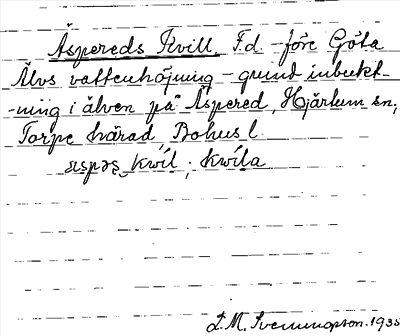 Äspereds Kvill, F.d. - före Göta
Älvs vattenhöjning - grund inbukt-
-ning i älven på Äspered, Hjärtum sn,
Torpe härad, Bohusl.
kwil ; kwila
L. M. Svenungsson. 1935